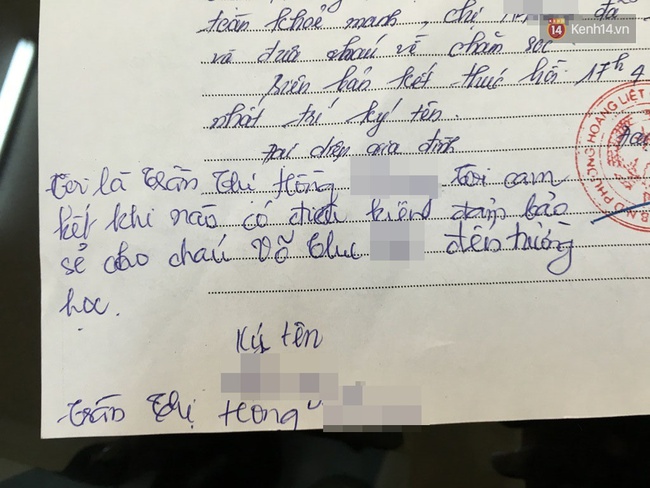 toàn khoẻ mạnh, chị đã
14 Kenh14.vn
và đưa cháu về chăm sóc
Biên bản kết thúc hồi 17h4
nhất trí ký tên.
Đại diện gia đình
PHƯỜNG HOÀNG LIỆT
Tôi là Trần Thị Hồng Tôi cam
kết khi nào có điều kiện đảm bảo
sẽ cho cháu Võ đến trường
học.
Ký tên
Trần Thị Hồng